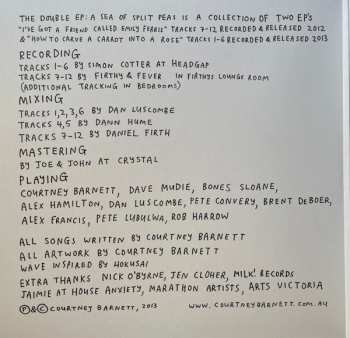 THE DOUBLE EP: A SEA OF SPLIT PEAS IS A COLLECTION OF TWO EP'S
"I'VE GOT A FRIEND CALLED EMILY FERRIS" TRACKS 7-12 RECORDED & RELEASED 2012
& "HOW TO CARVE A CARROT INTO A ROSE" TRACKS 1-6 RECORDED & RELEASED 2013
RECORDING
TRACKS 1-6 BY SIMON COTTER AT HEADGAP
TRACKS 7-12 BY FIRTHY & FEVER IN FIRTHYS LOUNGE ROOM
(ADDITIONAL TRACKING IN BEDROOMS)
MIXING
TRACKS 1,2,3,6 BY DAN LUSCOMBE
TRACKS 4,5 BY DANN HUME
TRACKS 7-12 BY DANIEL FIRTH
MASTERING
BY JOE & JOHN AT CRYSTAL
PLAYING
COURTNEY BARNETT, DAVE MUDIE, BONES SLOANE,
ALEX HAMILTON, DAN LUSCOMBE, PETE CONVERY, BRENT DEBOER,
ALEX FRANCIS, PETE LUBULWA, ROB HARROW
ALL SONGS WRITTEN BY COURTNEY BARNETT
ALL ARTWORK BY COURTNEY BARNETT
WAVE INSPIRED BY HOKUSAI
EXTRA THANKS NICK O'BYRNE, JEN CLOHER, MILK! RECORDS
JAIMIE AT HOUSE ANXIETY, MARATHON ARTISTS, ARTS VICTORIA
Ⓟ&© COURTNEY BARNETT, 2013 WWW.COURTNEYBARNETT.COM.AU